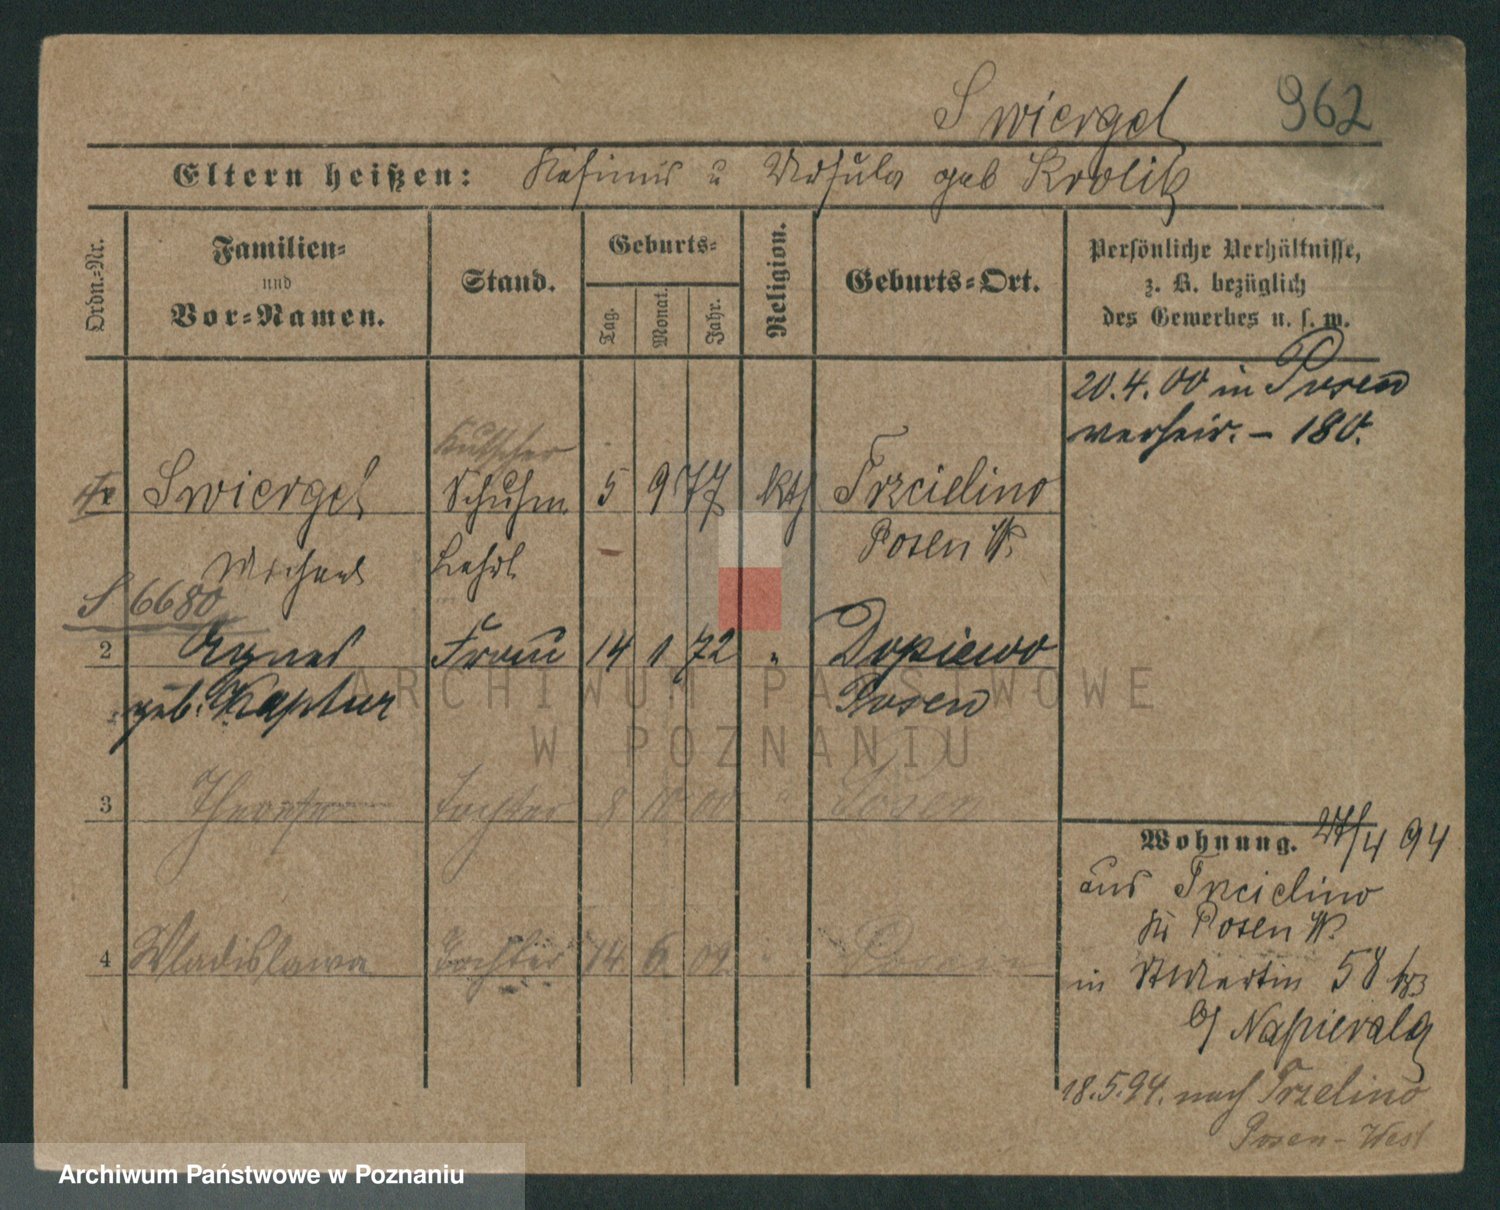 Swiergel 962
Eltern heißen: Kasimir u Ursula geb Krolik
Ordn.-Nr.
Familien-
und
Vor-Namen.
Stand.
Geburts-
Tag. Monat. Jahr.
Religion.
Geburts-Ort.
Persönliche Verhältnisse,
z. B. bezüglich
des Gewerbes u. s. w.
20.4.00 in Posen
verheir. - 180.
Kutscher
Swiergel Schuhm 5 9 77 kth Trzcielino
Michael Lehrl Posen W.
S 6680
2 Agnes Frau 14 1 72 " Dopiewo
geb. Kaptur Posen
3 Theresa Tochter 8 10 00 " Posen
4 Wladislawa Tochter 14 6 02 " Posen
Wohnung. 27/4 94
aus Trzcielino
Kr Posen W.
in St Martin 58
b/ Napierala
18.5.94. nach Trzelino
Posen-West
ARCHIWUM PAŃSTWOWE
W POZNANIU
Archiwum Państwowe w Poznaniu